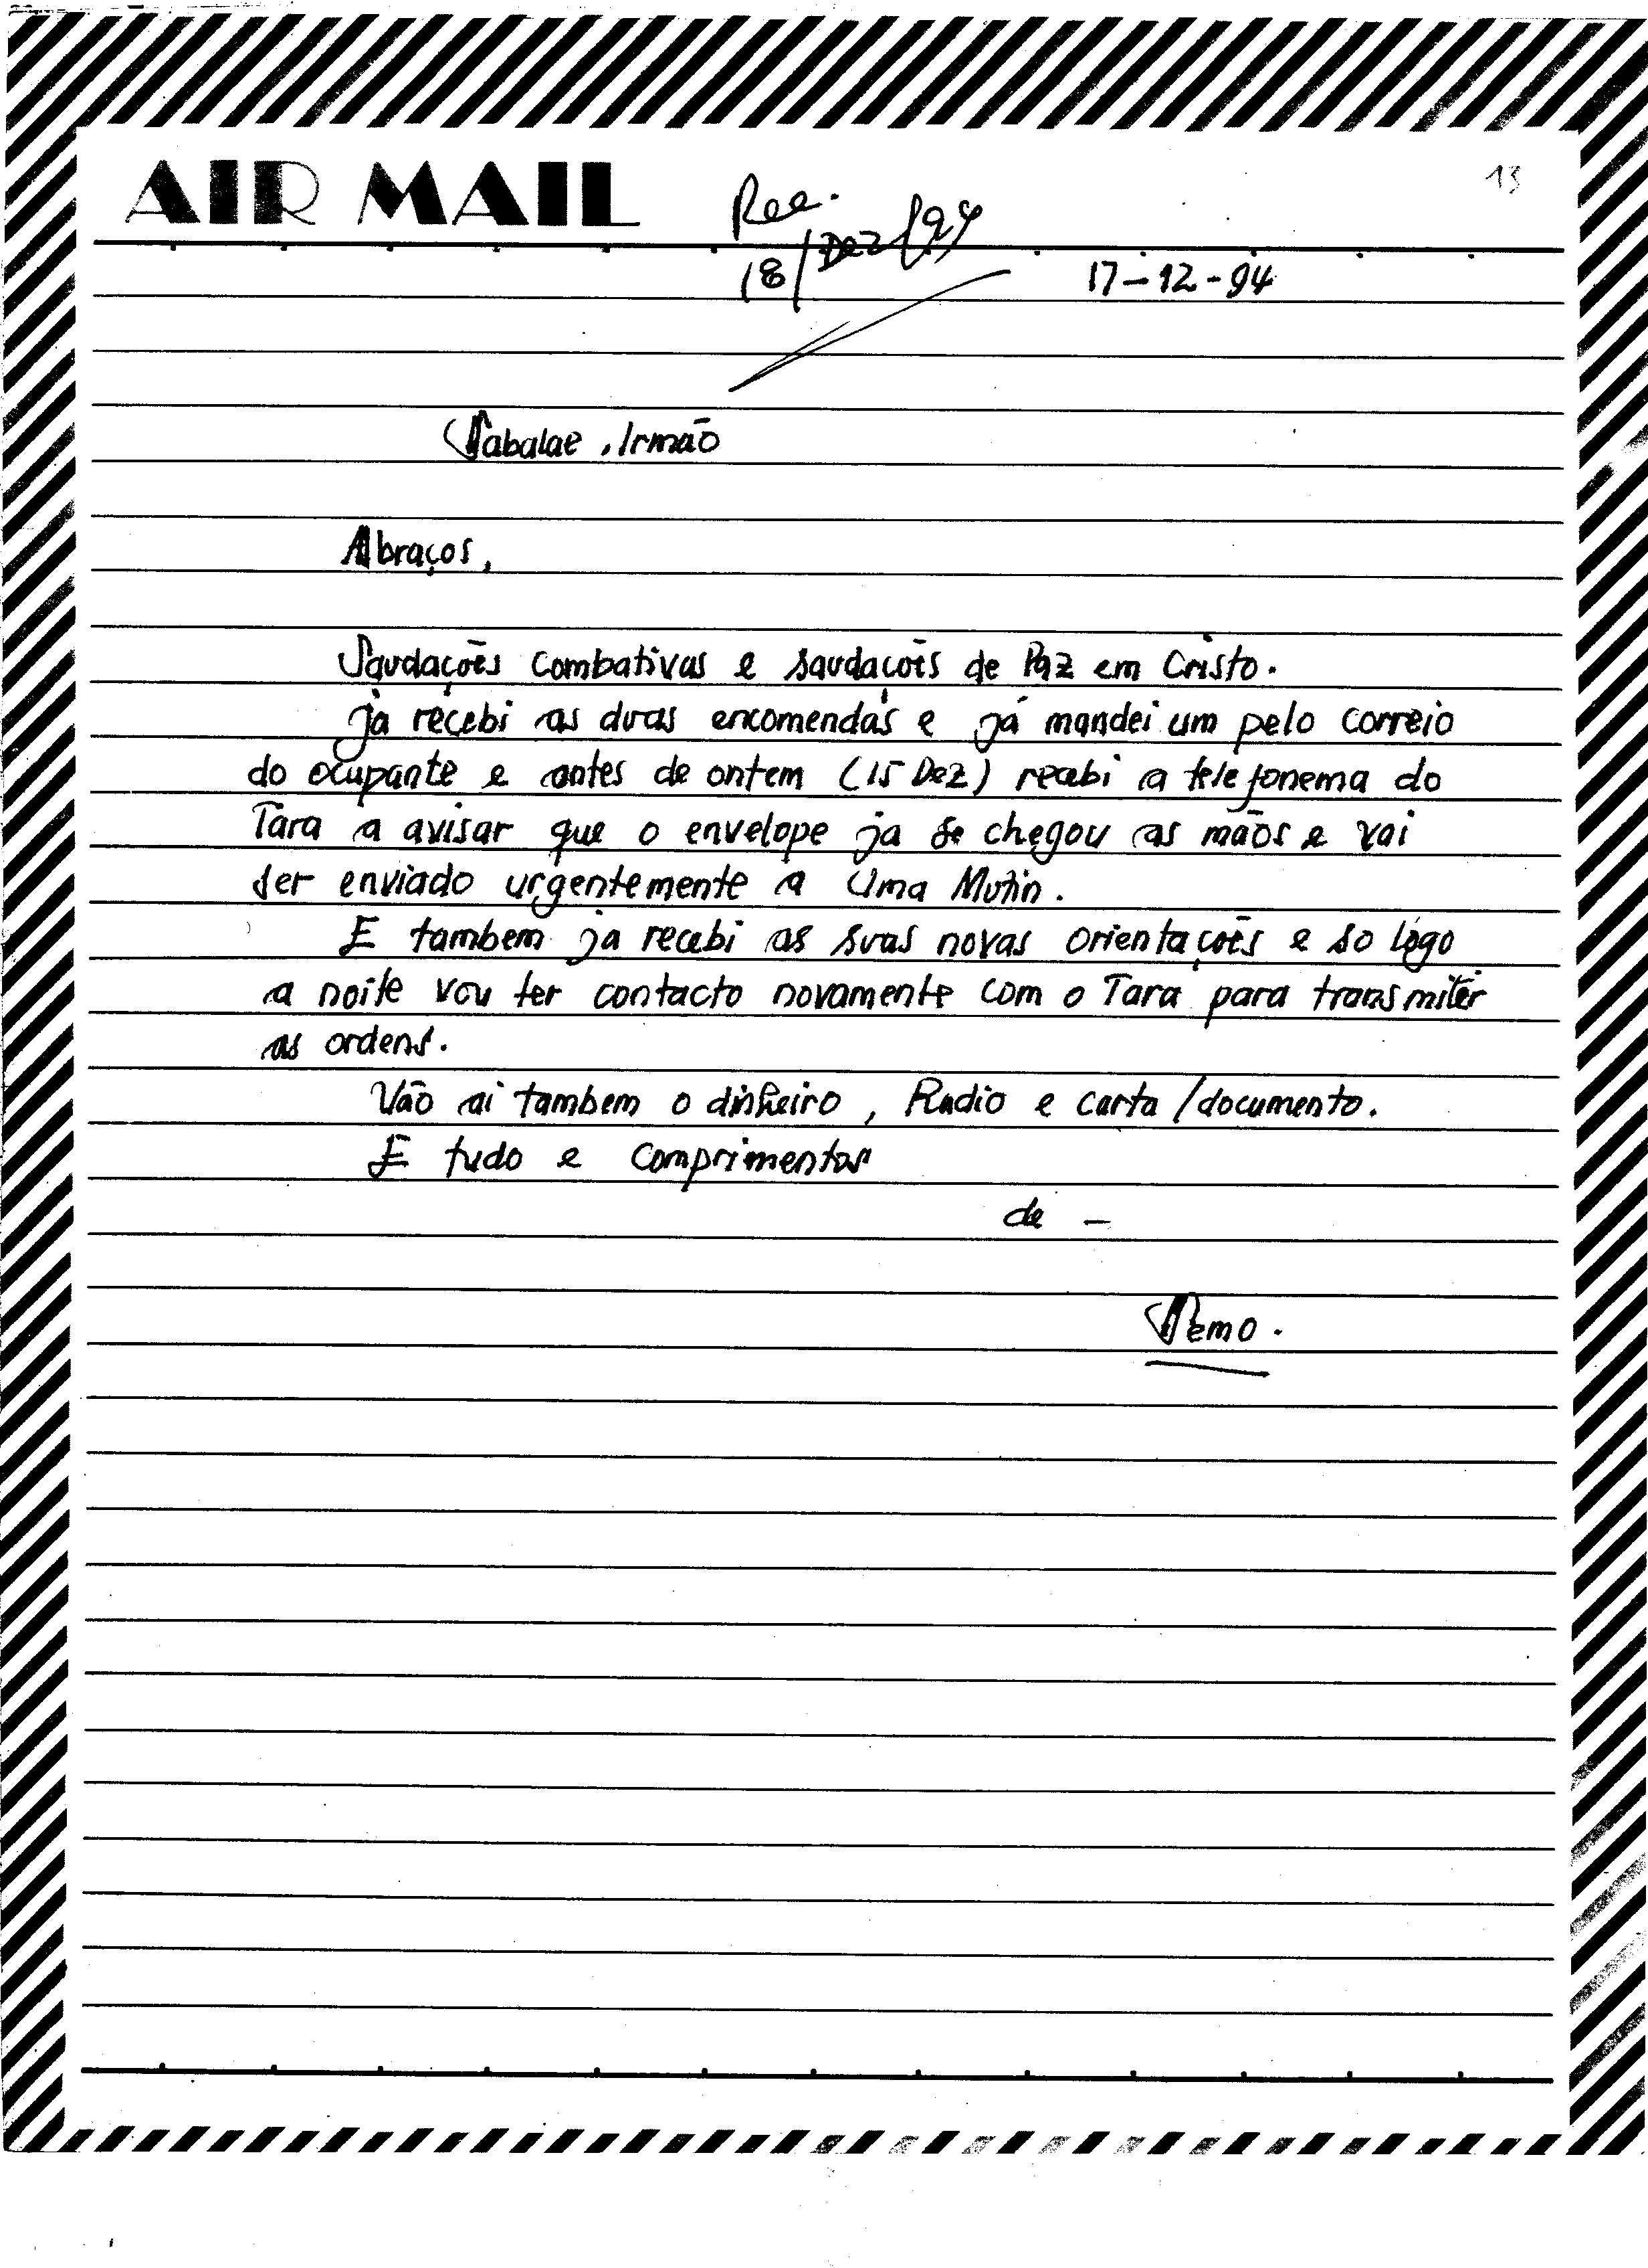 AIR MAIL
13
Rec.
18/Dez/94
17-12-94
Sabalae, Irmão
Abraços,
Saudações combativas e saudações de Paz em Cristo.
já recebi as duas encomendas e já mandei um pelo correio
do ocupante e antes de ontem (15 Dez) recebi a telefonema do
Tara a avisar que o envelope ja se chegou as mãos e vai
ser enviado urgentemente a Uma Mutin.
E tambem ja recebi as suas novas orientações e so logo
a noite vou ter contacto novamente com o Tara para transmiter
as ordens.
Vão ai tambem o dinheiro, Radio e carta/documento.
E tudo e comprimentos
de -
Nemo.